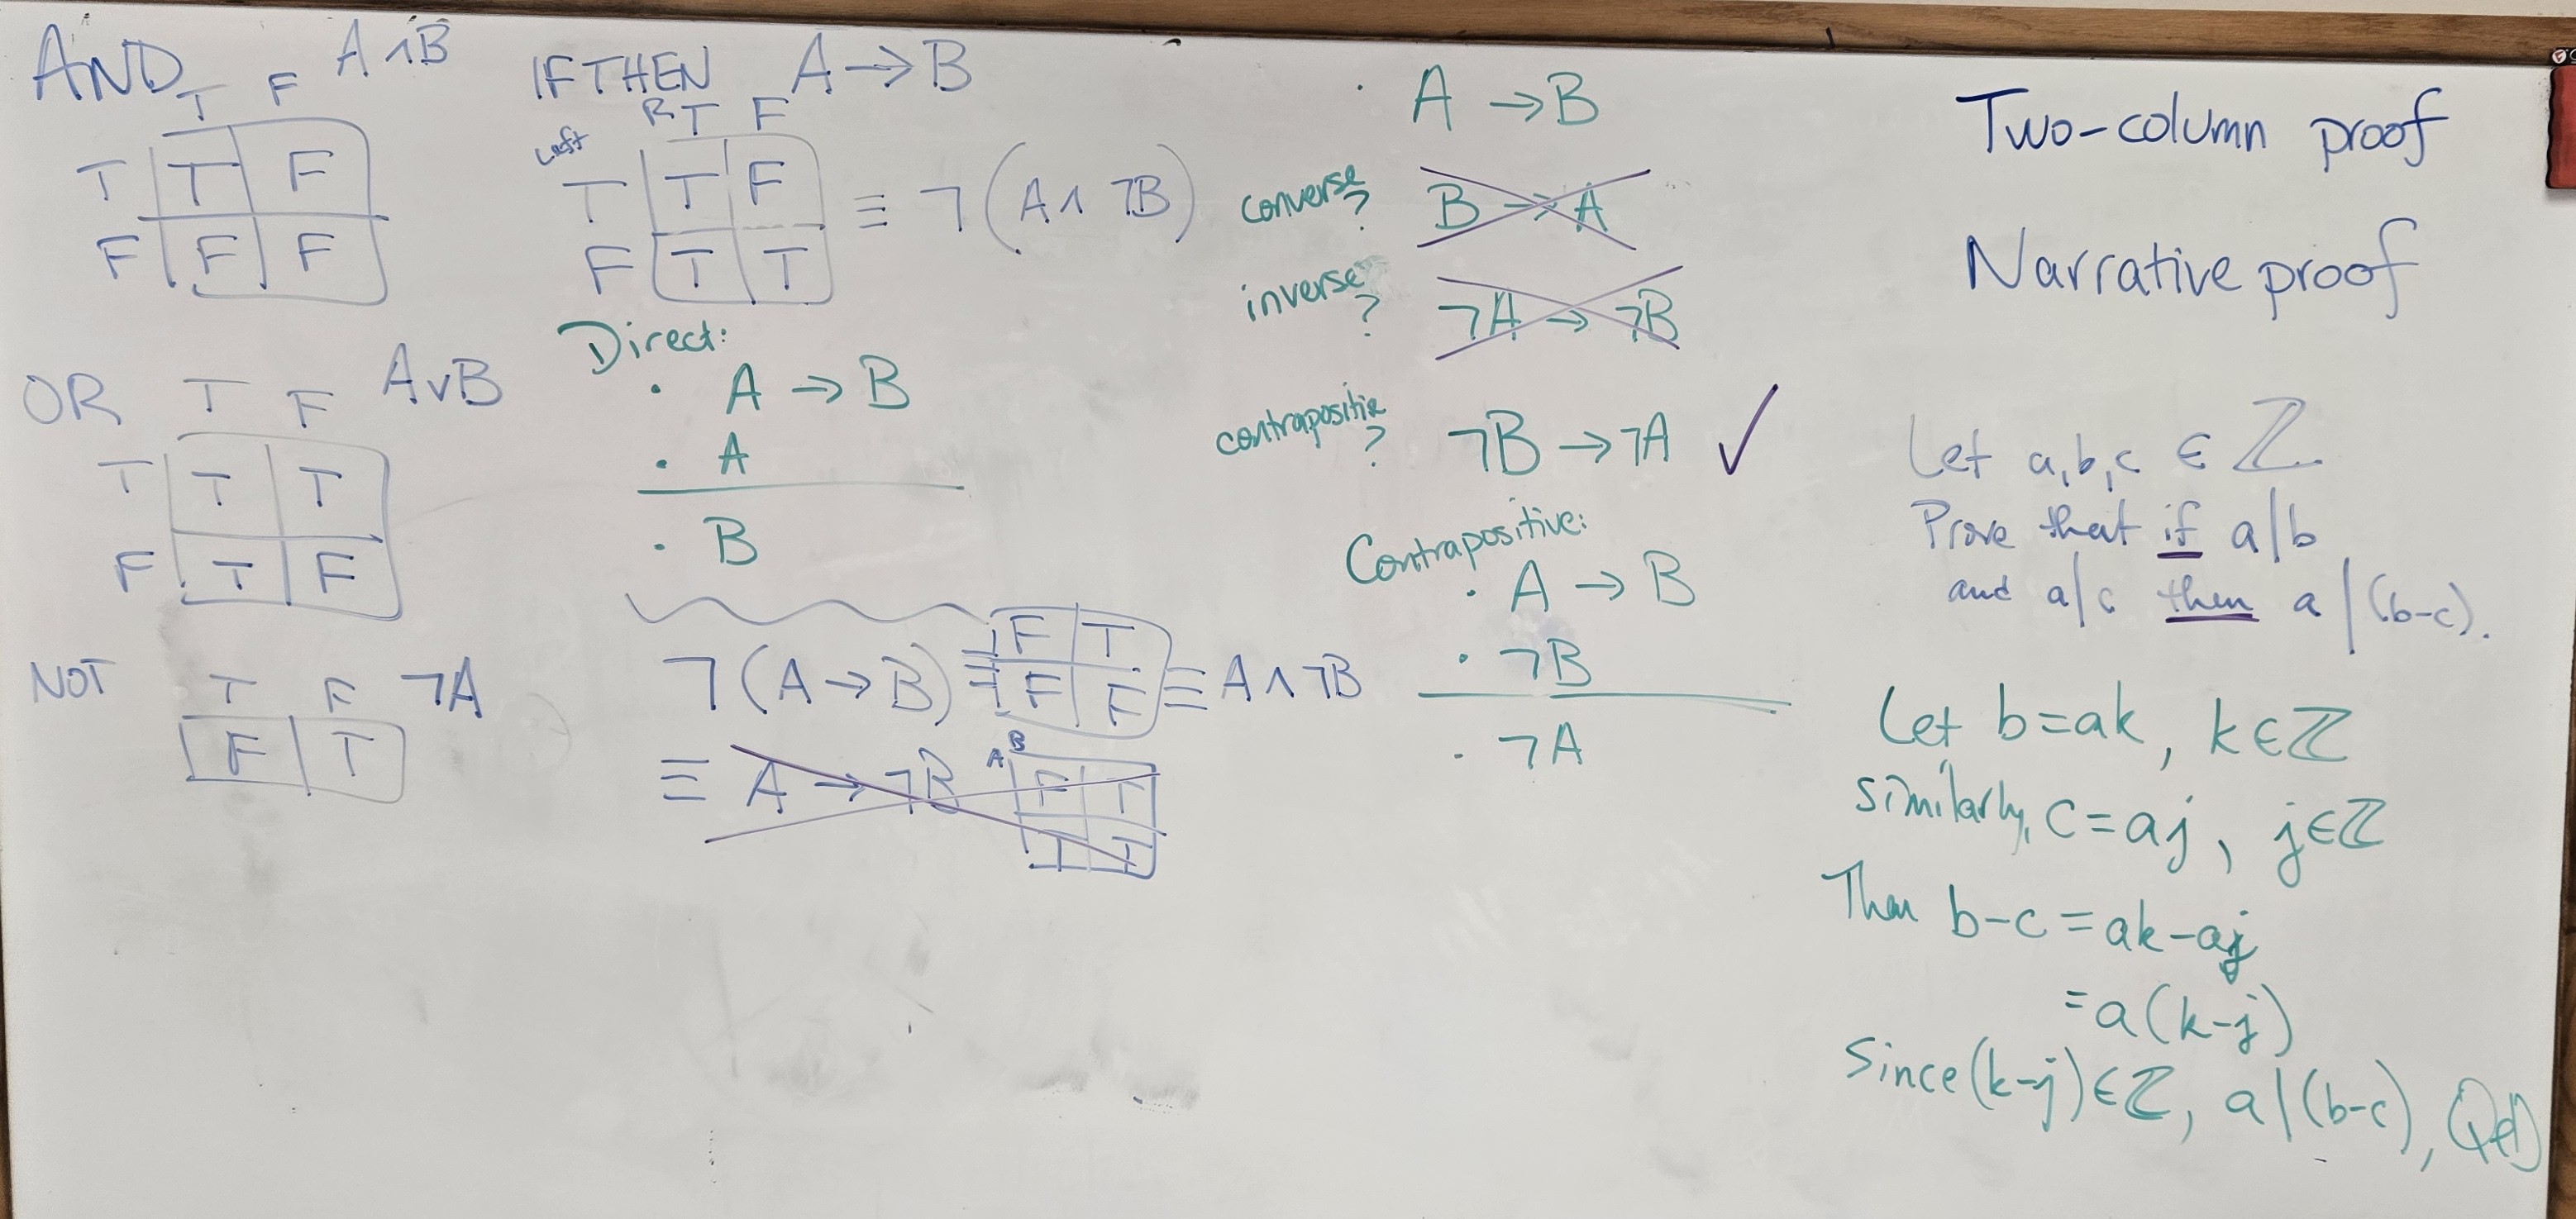 AND A∧B
T F
T T F
F F F
OR T F A∨B
T T T
F T F
NOT T F ¬A
F T
IF THEN A → B
R T F
Left
T T F ≡ ¬(A ∧ ¬B)
F T T
Direct:
• A → B
• A
• B
¬(A → B) ≡ F T ≡ A ∧ ¬B
F F
≡ A → ¬B
B
A
F T
T T
• A → B
converse? B → A
inverse? ¬A → ¬B
contrapositive? ¬B → ¬A ✓
Contrapositive:
• A → B
• ¬B
• ¬A
Two-column proof
Narrative proof
Let a,b,c ∈ ℤ.
Prove that if a|b
and a|c then a|(b-c).
Let b=ak, k∈ℤ
similarly, c=aj, j∈ℤ
Then b-c = ak-aj
=a(k-j)
Since (k-j)∈ℤ, a|(b-c), QED